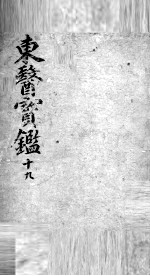 東醫寶鑑 十九